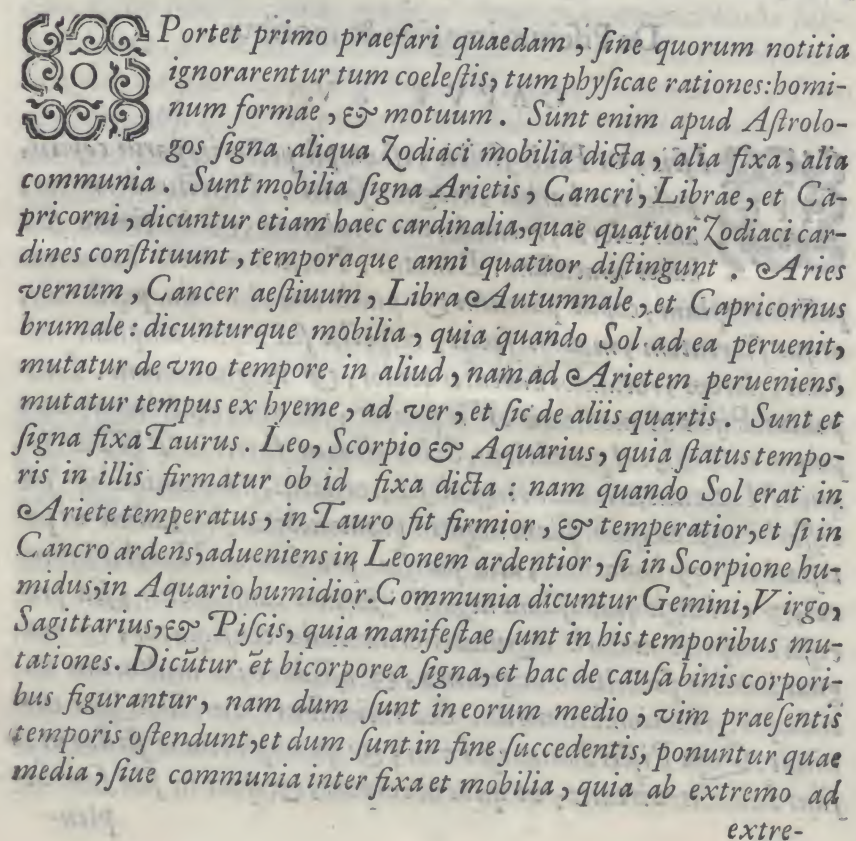 OPortet primo praefari quaedam, ſine quorum notitia
ignorarentur tum coeleſtis, tum phyſicae rationes: homi-
num formae, & motuum. Sunt enim apud Aſtrolo-
gos ſigna aliqua Zodiaci mobilia dicta, alia fixa, alia
communia. Sunt mobilia ſigna Arietis, Cancri, Librae, et Ca-
pricorni, dicuntur etiam haec cardinalia, quae quatuor Zodiaci car-
dines conſtituunt, temporaque anni quatuor diſtingunt. Aries
vernum, Cancer aeſtiuum, Libra Autumnale, et Capricornus
brumale: dicunturque mobilia, quia quando Sol ad ea peruenit,
mutatur de vno tempore in aliud, nam ad Arietem perueniens,
mutatur tempus ex hyeme, ad ver, et ſic de aliis quartis. Sunt et
ſigna fixa Taurus. Leo, Scorpio & Aquarius, quia ſtatus tempo-
ris in illis firmatur ob id fixa dicta: nam quando Sol erat in
Ariete temperatus, in Tauro fit firmior, & temperatior, et ſi in
Cancro ardens, adueniens in Leonem ardentior, ſi in Scorpione hu-
midus, in Aquario humidior. Communia dicuntur Gemini, Virgo,
Sagittarius, & Piſcis, quia manifeſtae ſunt in his temporibus mu-
tationes. Dicũtur et̃ bicorporea ſigna, et hac de cauſa binis corpori-
bus figurantur, nam dum ſunt in eorum medio, vim praeſentis
temporis oſtendunt, et dum ſunt in fine ſuccedentis, ponuntur quae
media, ſiue communia inter fixa et mobilia, quia ab extremo ad
extre-